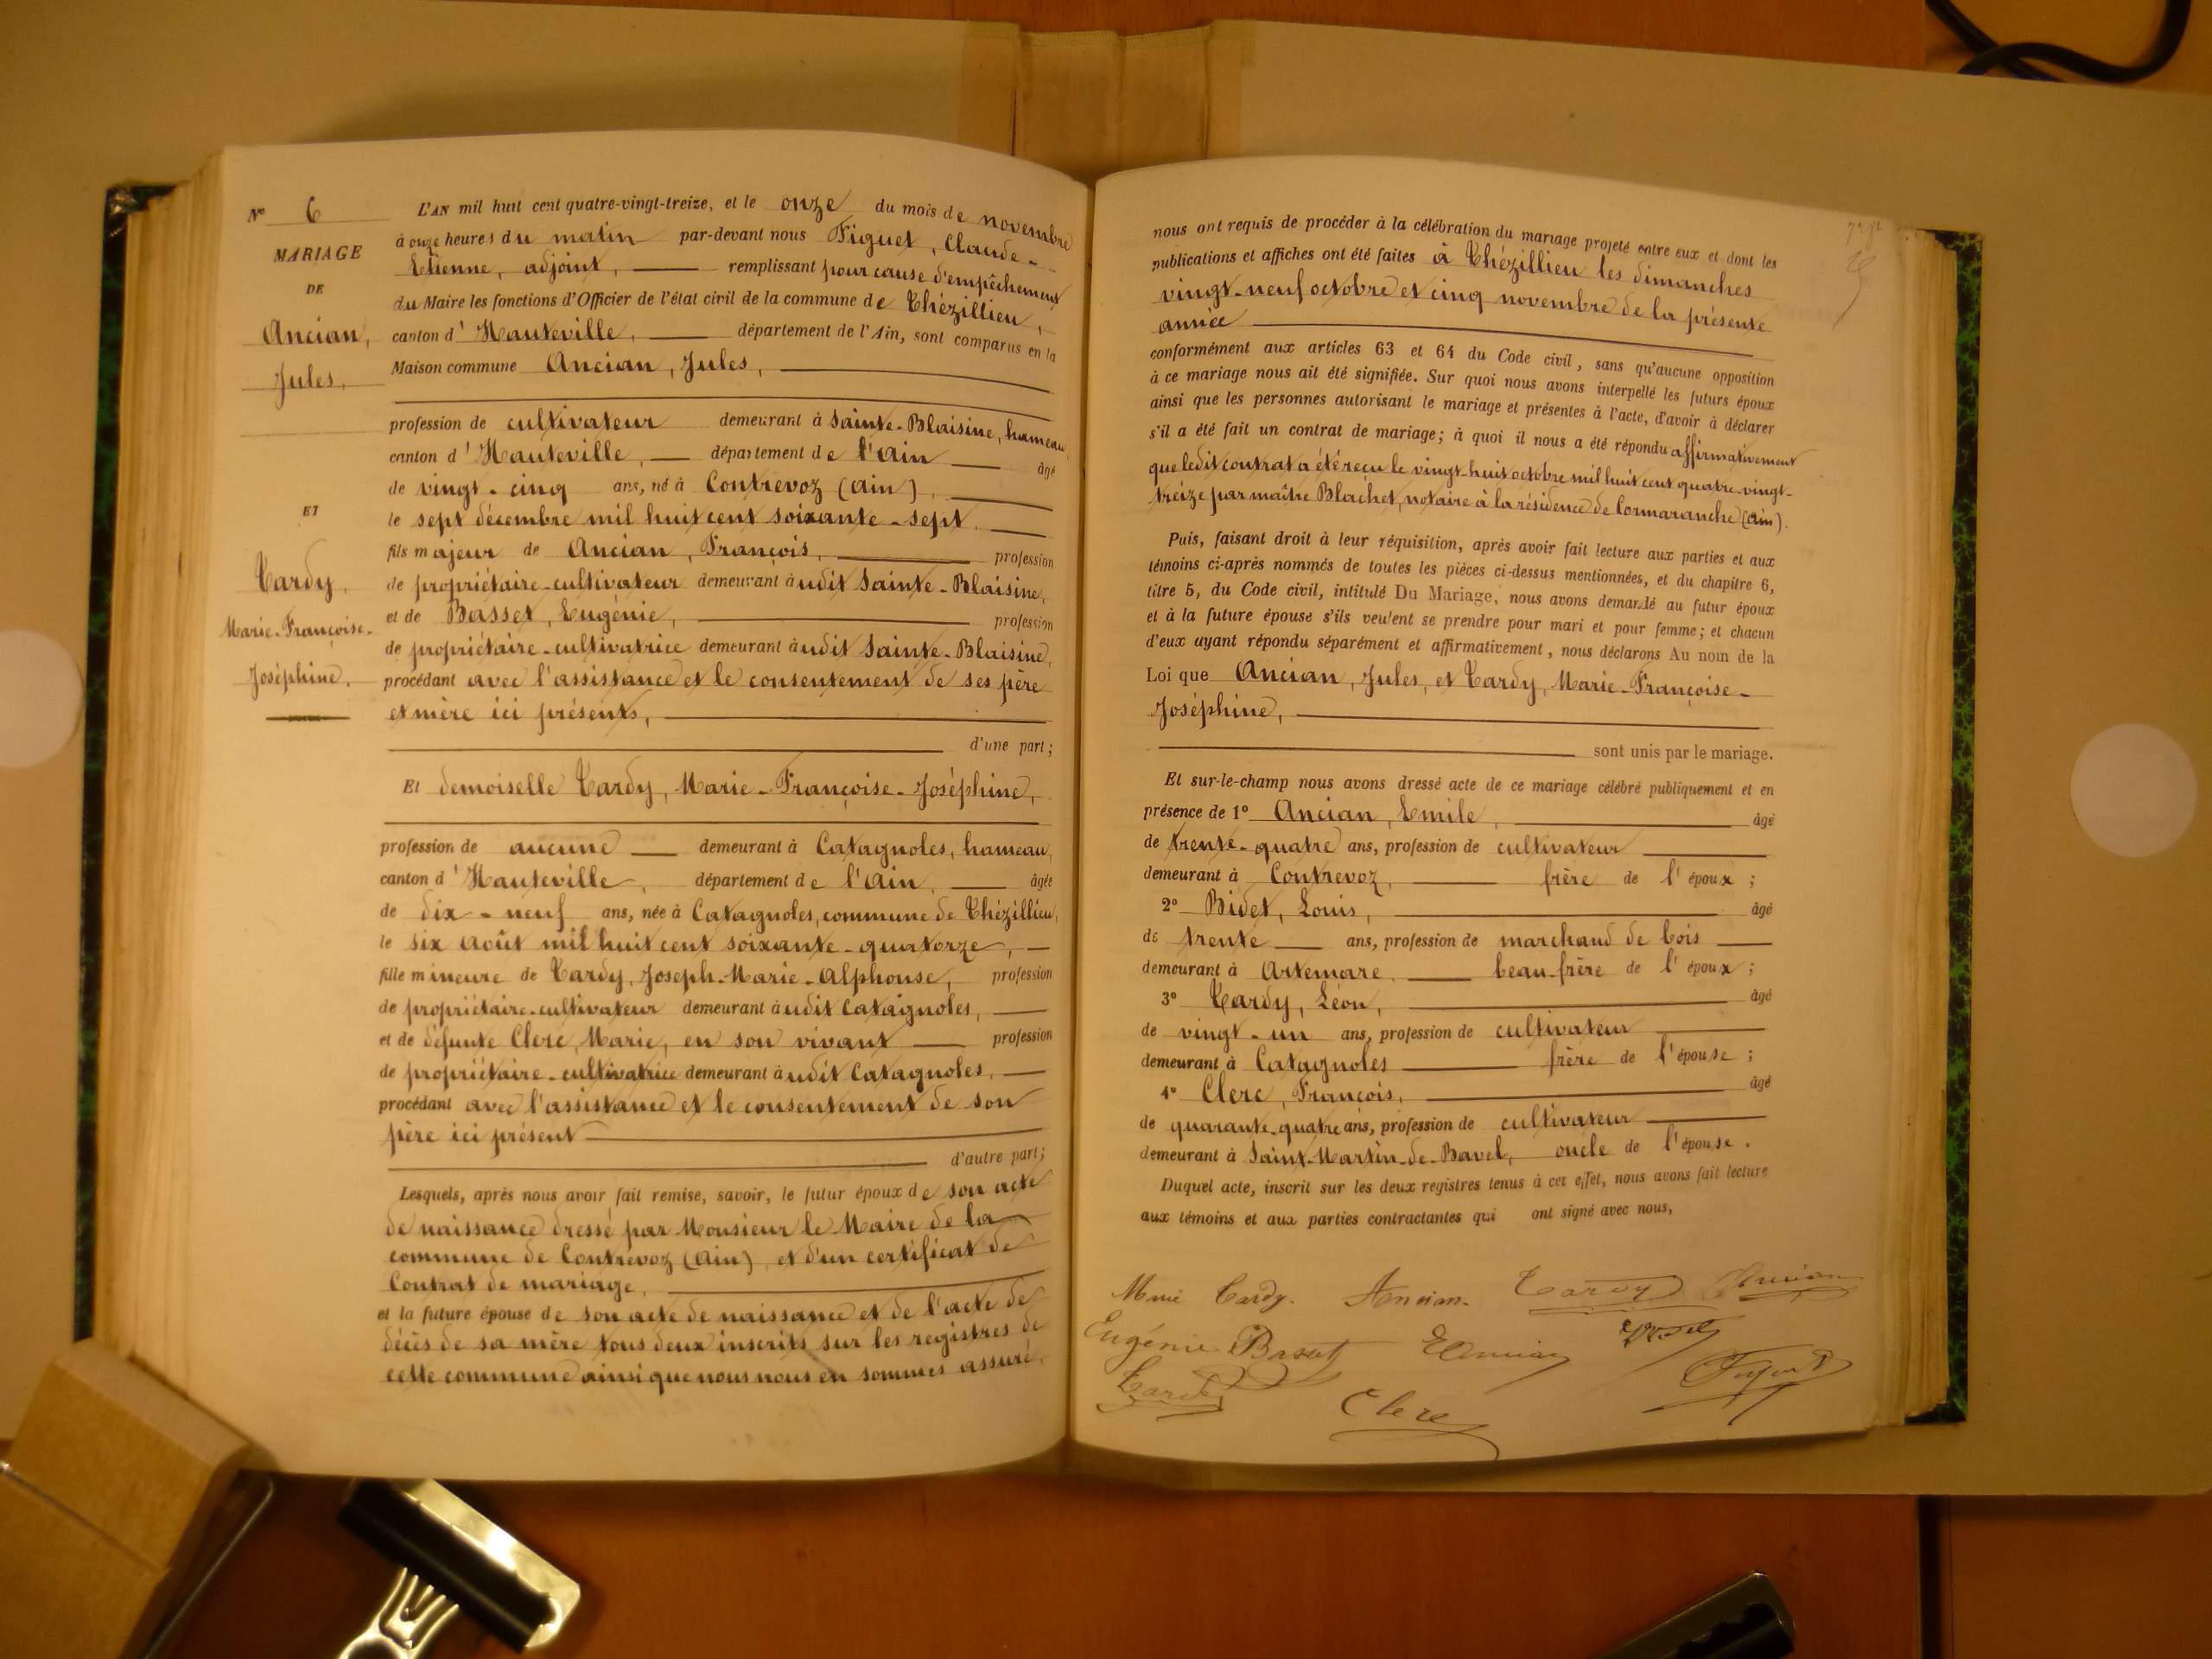 N° 6
MARIAGE
DE
Ancian,
Jules,
ET
Tardy,
Marie-Françoise-
Joséphine.
L'AN mil huit cent quatre-vingt-treize, et le onze du mois de novembre
à onze heures du matin par-devant nous Figuet, Claude-
Etienne, adjoint, remplissant pour cause d'empêchement
du Maire les fonctions d'Officier de l'état civil de la commune de Thézillieu,
canton d'Hauteville, département de l'Ain, sont comparus en la
Maison commune Ancian, Jules,
profession de cultivateur demeurant à Sainte-Blaisine, hameau,
canton d'Hauteville, département de l'Ain âgé
de vingt-cinq ans, né à Contrevoz (Ain),
le sept décembre mil huit cent soixante-sept,
fils majeur de Ancian, François, profession
de propriétaire-cultivateur demeurant àudit Sainte-Blaisine,
et de Basset, Eugénie, profession
de propriétaire-cultivatrice demeurant àudit Sainte-Blaisine,
procédant avec l'assistance et le consentement de ses père
et mère ici présents,
d'une part;
Et demoiselle Tardy, Marie-Françoise-Joséphine,
profession de aucune demeurant à Catagnoles, hameau,
canton d'Hauteville, département de l'Ain, âgée
de dix-neuf ans, née à Catagnoles, commune de Thézillieu,
le six août mil huit cent soixante-quatorze,
fille mineure de Tardy, Joseph-Marie-Alphonse, profession
de propriétaire-cultivateur demeurant àudit Catagnoles,
et de défunte Clerc, Marie, en son vivant profession
de propriétaire-cultivatrice demeurant àudit Catagnoles,
procédant avec l'assistance et le consentement de son
père ici présent
d'autre part;
Lesquels, après nous avoir fait remise, savoir, le futur époux de son acte
de naissance dressé par Monsieur le Maire de la
commune de Contrevoz (Ain), et d'un certificat de
Contrat de mariage,
et la future épouse de son acte de naissance et de l'acte de
décès de sa mère tous deux inscrits sur les registres de
cette commune ainsi que nous nous en sommes assuré,
nous ont requis de procéder à la célébration du mariage projeté entre eux et dont les
publications et affiches ont été faites à Thézillieu les dimanches
vingt-neuf octobre et cinq novembre de la présente
année
conformément aux articles 63 et 64 du Code civil, sans qu'aucune opposition
à ce mariage nous ait été signifiée. Sur quoi nous avons interpellé les futurs époux
ainsi que les personnes autorisant le mariage et présentes à l'acte, d'avoir à déclarer
s'il a été fait un contrat de mariage; à quoi il nous a été répondu affirmativement
que ledit contrat a été reçu le vingt-huit octobre mil huit cent quatre-vingt-
treize par maître Blachet, notaire à la résidence de Cormaranche (Ain).
Puis, faisant droit à leur réquisition, après avoir fait lecture aux parties et aux
témoins ci-après nommés de toutes les pièces ci-dessus mentionnées, et du chapitre 6,
titre 5, du Code civil, intitulé Du Mariage, nous avons demandé au futur époux
et à la future épouse s'ils veulent se prendre pour mari et pour femme; et chacun
d'eux ayant répondu séparément et affirmativement, nous déclarons Au nom de la
Loi que Ancian, Jules, et Tardy, Marie-Françoise-
Joséphine,
sont unis par le mariage.
Et sur-le-champ nous avons dressé acte de ce mariage célébré publiquement et en
présence de 1° Ancian, Emile, âgé
de trente-quatre ans, profession de cultivateur
demeurant à Contrevoz, frère de l'époux;
2° Bidet, Louis, âgé
de trente ans, profession de marchand de bois
demeurant à Artemare, beau-frère de l'époux;
3° Tardy, Léon, âgé
de vingt-un ans, profession de cultivateur
demeurant à Catagnoles frère de l'épouse;
4° Clerc, François, âgé
de quarante-quatre ans, profession de cultivateur
demeurant à Saint-Martin-de-Bavel, oncle de l'épouse.
Duquel acte, inscrit sur les deux registres tenus à cet effet, nous avons fait lecture
aux témoins et aux parties contractantes qui ont signé avec nous,
Marie Tardy. Ancian. Tardy Ancian
Eugénie Basset EAncian
Tardy Clerc Figuet